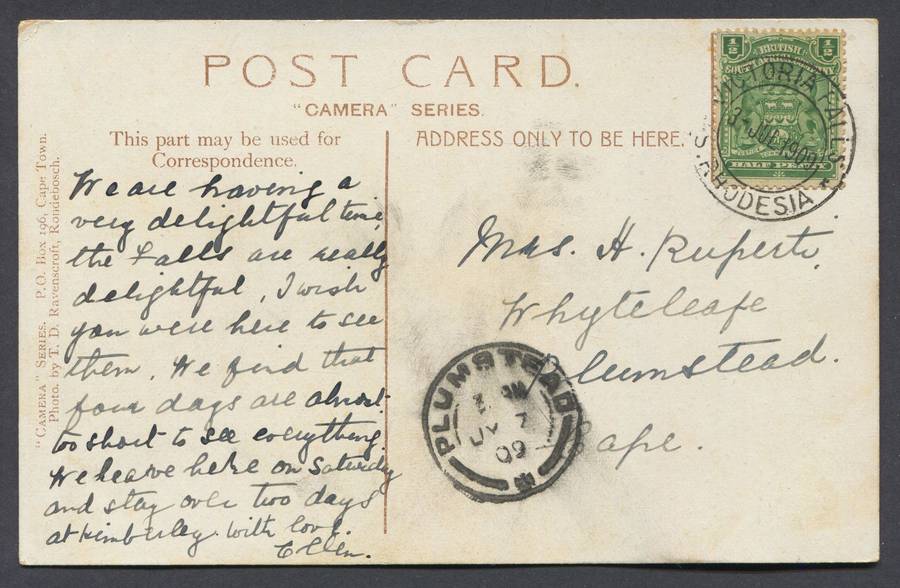 POST CARD.
"CAMERA" SERIES.
This part may be used for
Correspondence.
ADDRESS ONLY TO BE HERE.
"CAMERA" SERIES. P.O. Box 196, Cape Town.
Photo. by T. D. Ravenscroft, Rondebosch.
We are having a
very delightful time,
the Falls are really
delightful, I wish
you were here to see
them. We find that
four days are almost
too short to see everything.
We leave here on Saturday
and stay over two days
at Kimberley. With love.
Ellen.
½ ½
BRITISH
SOUTH AFRICA COMPANY
HALF PENNY
VICTORIA FALLS
JUL 1909
S. RHODESIA
Mrs. H. Ruperti,
Whyteleafe
Plumstead.
Cape.
PLUMSTEAD
JY 7
09